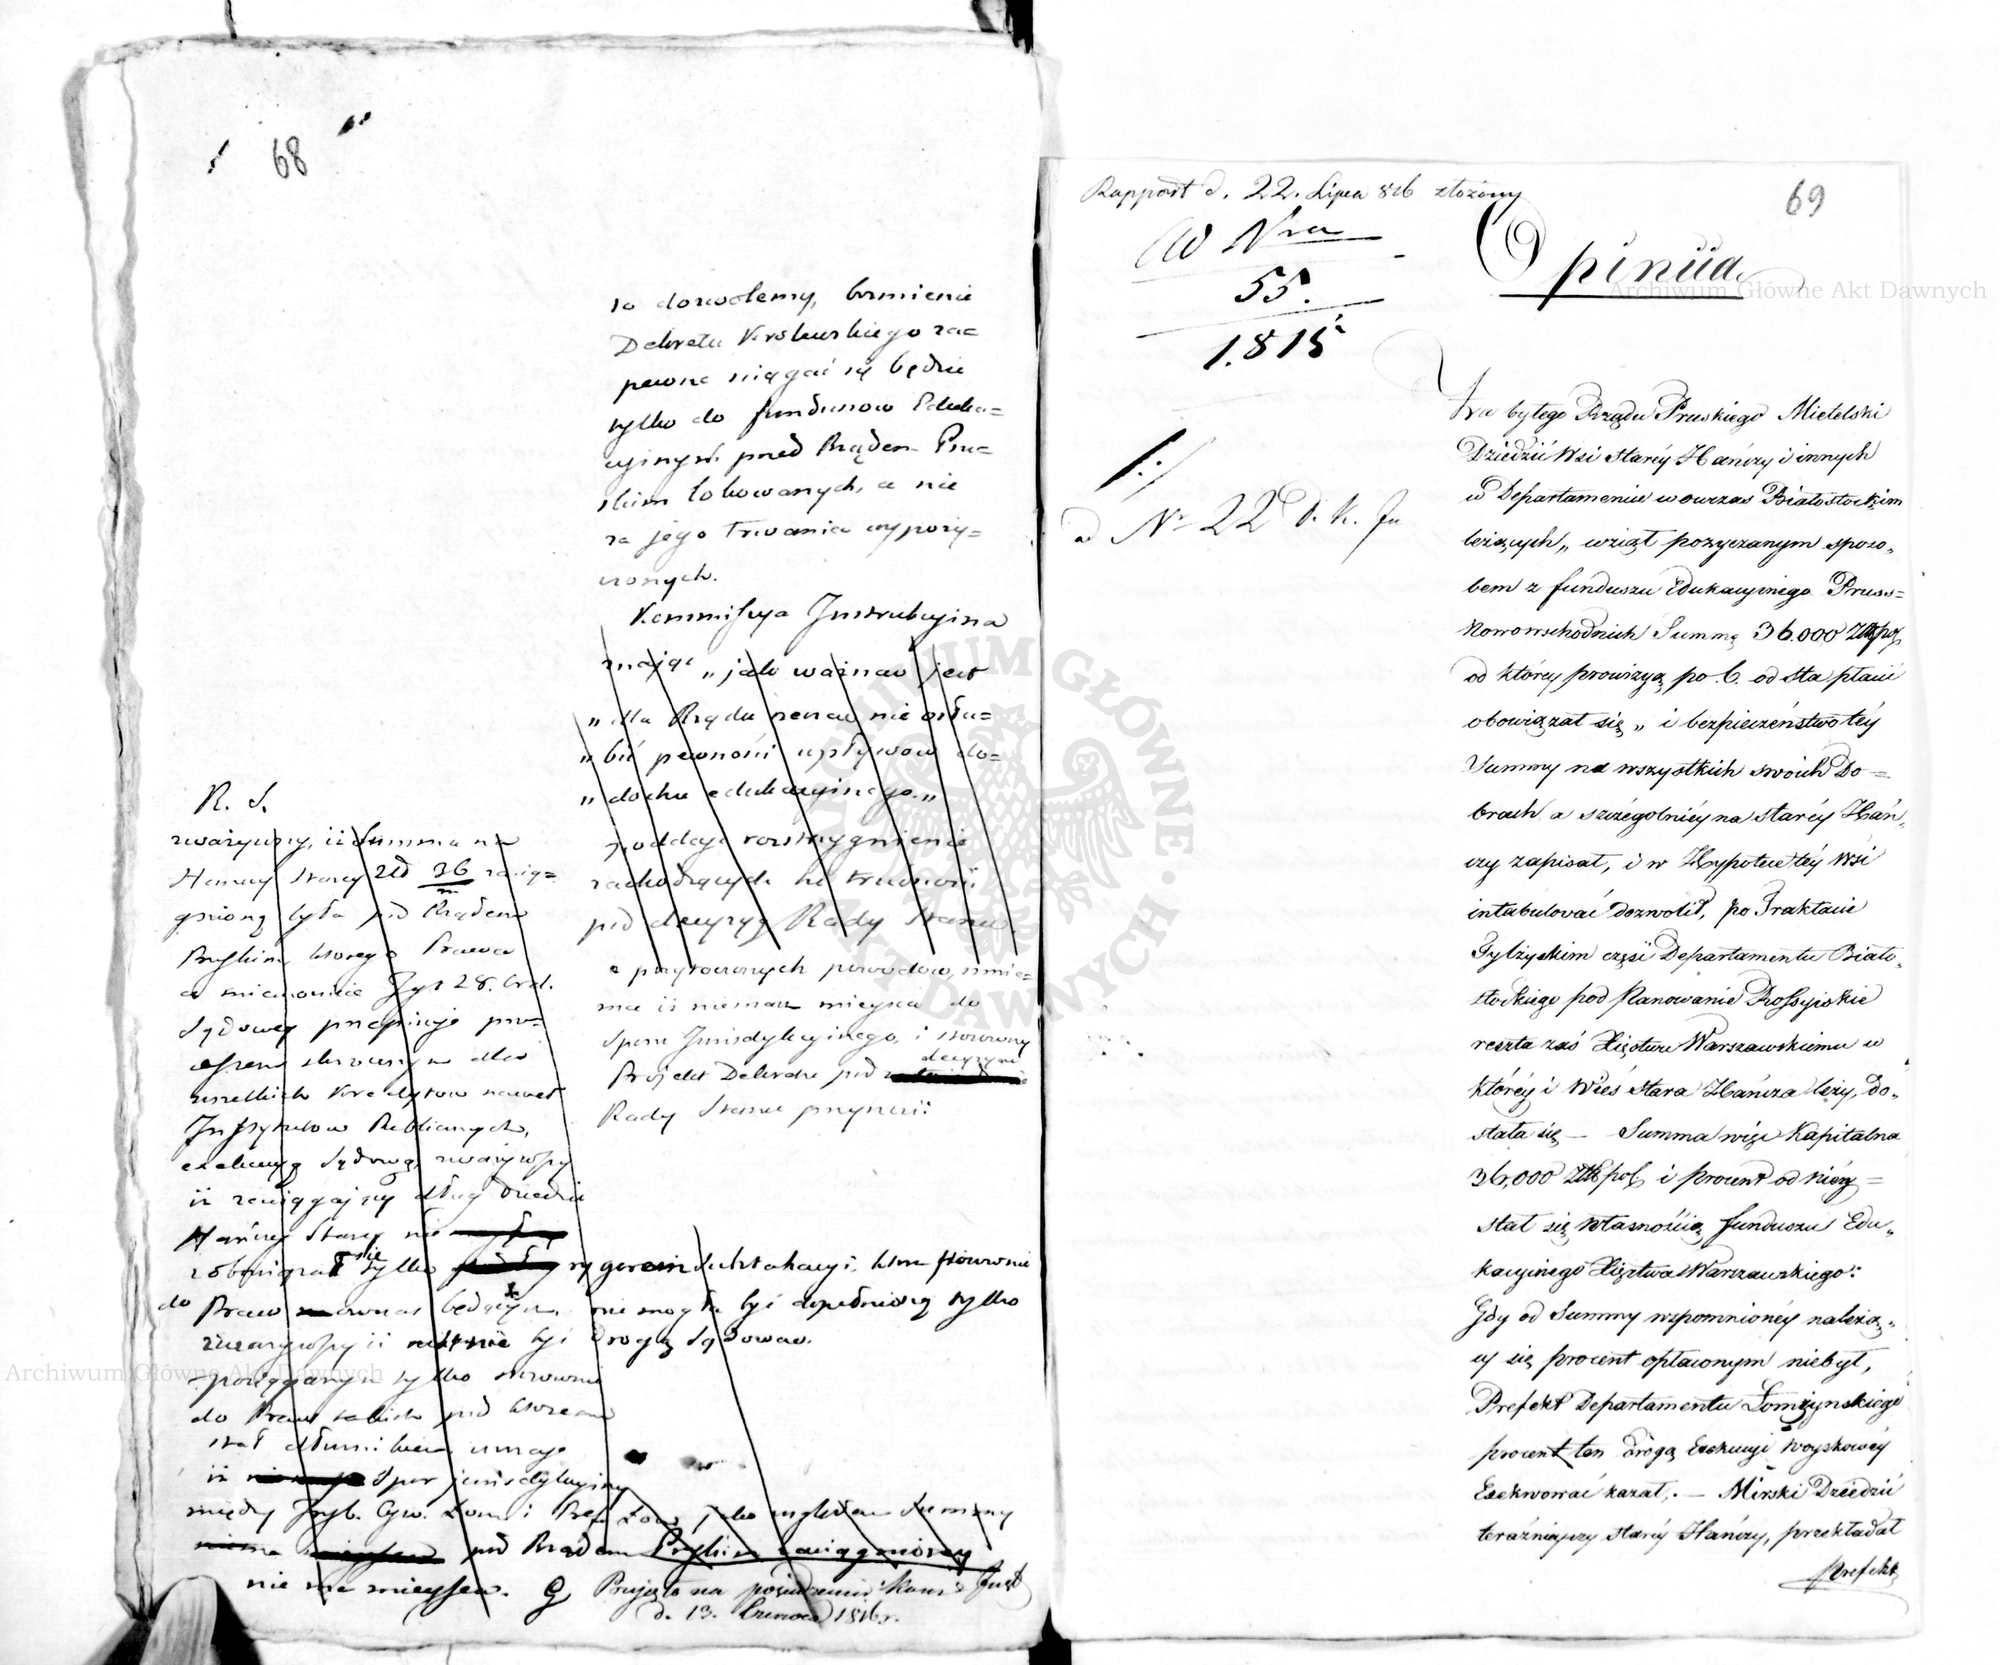 68
to dozwolemy, brzmienie
Dekretu Królewskiego za=
pewne sięgać się będzie
tylko do funduszow Eduka=
cyinych przed Rządem Pru=
skim lokowanych, a nie
za jego trwania wypoży=
czonych.
Kommissya Instrukcyina
mając „jak ważnem jest
„dla Rządu rzeczą nie osła=
„bić pewności wpływow do=
„chodu edukacyinego.„
poddaje rozstrzygnienie
zachodzących tu trudności
pod decyzyą Rady Stanu.
z przytoczonych powodow, mnie=
ma iż niemasz mieysca do
sporu Jurisdykcyinego, i stosowny
decyzyą
Projekt Dekretu pod
Rady Stanu przynosi:
N. S.
zważywszy, iż Summa na
Hańczy Starey Zł 36 zacią=
gnioną była pod Rządem
Pruskim, ktorego Prawa
a mianowicie Tyt 28. Ord.
Sądowey przepisuje pro=
cessem skróconym dla
wszelkich Kredytow nawet
Instytutow Publicznych,
exekucyą Sądową, zważywszy
iż zaciągaiący dług Dziedzic
Hańczy Starey nie
się
zobowiązał tylko rygorem, ktora stosownie
do Praw ownas będących nie mogła być dopełnioną tylko
zważywszy iż być drogą Sądową.
pociąganym tylko stosownie
do Praw takich pod ktoremi
stał dłużnikiem uznaje
iż Spor jurisdykcyiny
między Tryb. Cyw. Łom: i Pref. Łom: jako względem Summy
pod Rządem Pruskim zaciągnioney
nie ma mieysca. Przyjęto na posiedzeniu
d. 13. Czerwca 1816 r.
Rapport d. 22. Lipca 816 złożony
69
Ad Nra
55.
1.815
Opiniia
ad Nr 22 D. K. Ju
Za byłego Rządu Pruskiego Mietelski
Dziedzić Wsi starey Hańczy i innych
w Departamencie wowczas Białostockim
leżących„ wziął pożyczanym sposo„
bem z funduszu Edukacyinego Pruss=
Nowowschodnich Summę 36.000 Złłpol
od którey prowizyą po 6. od sta płacić
obowiązał się„ i bezpieczeństwo téy
Summy na wszystkich swoich Do=
brach a szczegolniéy na staréy Hań„
czy zapisał, i w Hypotece téy Wsi
intabulować dozwolił, po Traktacie
Tylżyckim część Departamentu Biało„
stockiego pod Panowanie Rossyiskie
reszta zaś Xięstwu Warszawskiemu w
któréy i Wieś stara Hańcza leży, do„
stała się — Summa więc Kapitalna
36,000 Złłpol i procent od niéy =
stał się własnością funduszu Edu„
kacyinego Xięztwa Warszawskiego:
Gdy od Summy wspomnionéy należą„
cy się procent opłaconym niebył,
Prefekt Departamentu Łomżynskiego
procent ten drogą Exekucyi Woyskowéy
Exekwować kazał,. — Mirski Dziedzić
teraźnieyszy staréy Hańczy, przekładał
Prefekt
Archiwum Główne Akt Dawnych
Archiwum Główne Akt Dawnych
ARCHIWUM GŁÓWNE AKT DAWNYCH